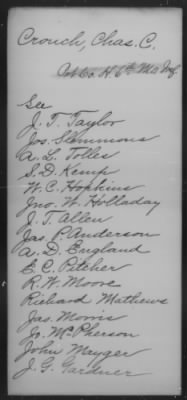 Crouch, Chas. C.
Co. H. 6th Mo Inf.
See
J. T. Taylor
Jos. Slemmons
A. L. Tolles
S. D. Kemp
W. C. Hopkins
Jno. W. Holladay
J. T. Allen
Jas. P. Anderson
A. D. England
E. C. Pitcher
R. W. Moore
Richard Mathews
Jas. Morris
Jo. McPherson
John Mayger
J. G. Gardner